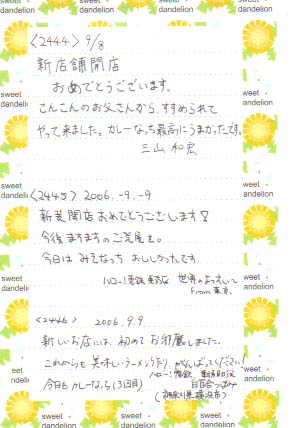 sweet dandelion
sweet dandelion
<2444> 9/8
新店舗開店
おめでとうございます。
さんさんのお父さんから、すすめられて
やって来ました。カレーなっち最高にうまかったです。
三山 和宏
sweet dandelion
sweet dandelion
<2445> 2006.-9.-9
新装開店おめでとうございます!
今後ますますのご発展を。
今日はみそなっち おいしかったです。
世界の
from 東京
sweet dandelion
sweet dandelion
<2446> 2006.9.9
新しいお店には、初めてお邪魔しました。
これからも美味しいラーメンつくり、がんばってください!
今日もカレーなっち(3回目)
(神奈川県横浜市)
sweet dandelion
sweet dandelion